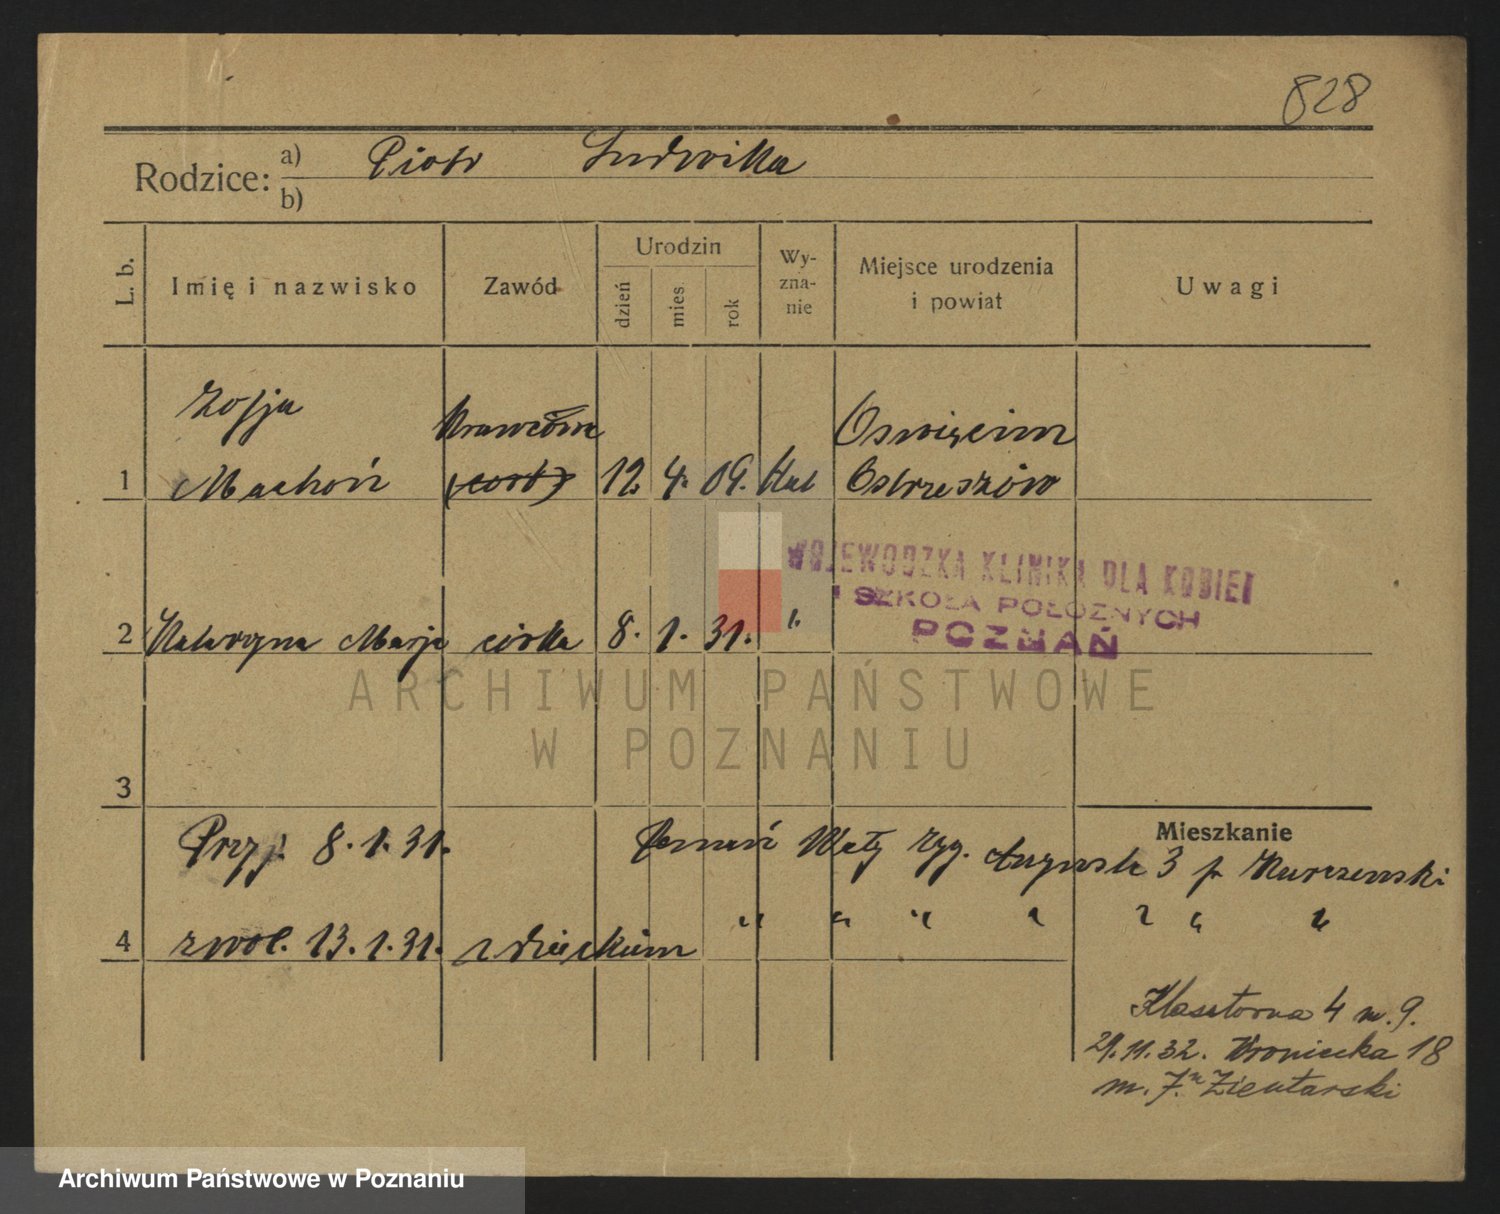 828
Rodzice: a) Piotr Ludwika
b)
L. b. Imię i nazwisko Zawód Urodzin dzień mies. rok Wy-zna-nie Miejsce urodzenia i powiat Uwagi
Zofja Krawcowa Oswięcim
1 Machoń 12. 4. 09. Kat Ostrzeszów
WOJEWODZKA KLINIKA DLA KOBIET
I SZKOŁA POŁOŻNYCH
POZNAŃ
2 Katarzyna Marja córka 8. 1. 31. "
ARCHIWUM PAŃSTWOWE
W POZNANIU
3
Mieszkanie
Przyj. 8.1.31. Poznań Wały Zyg. Augusta 3 p Kurczewski
" " " " " " "
4 zwol. 13.1.31. z dzieckiem
Klasztorna 4 m. 9.
29.11.32. Wroniecka 18
m. 7. u Zientarski
Archiwum Państwowe w Poznaniu